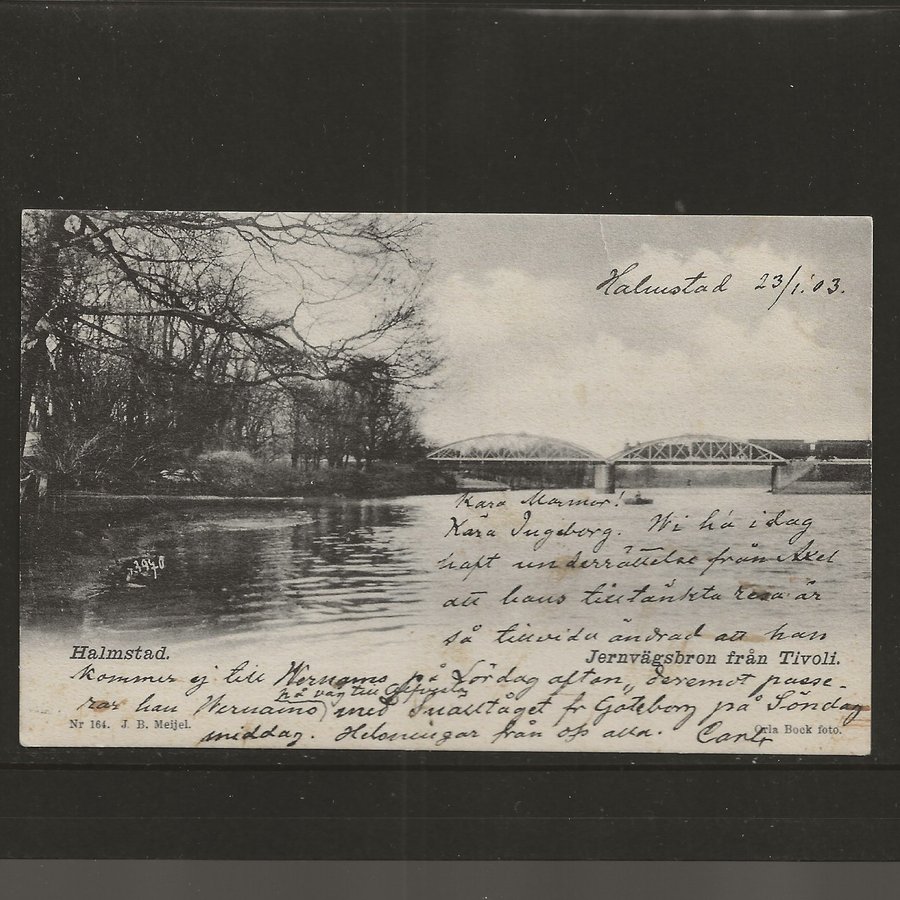 Halmstad 23/1.03.
Kära Mormor!
Kära Ingeborg. Wi ha idag
haft underrättelse från Axel
att hans tilltänkta resa är
så tillvida ändrad att han
3940
Halmstad.
Jernvägsbron från Tivoli.
kommer ej till Wernamo på Lördag afton, deremot passe-
på väg till
rar han Wernamo med Snälltåget fr Göteborg på Söndag
Nr 164. J. B. Meijel.
middag. Helsningar från oss alla.
Orla Bock foto.